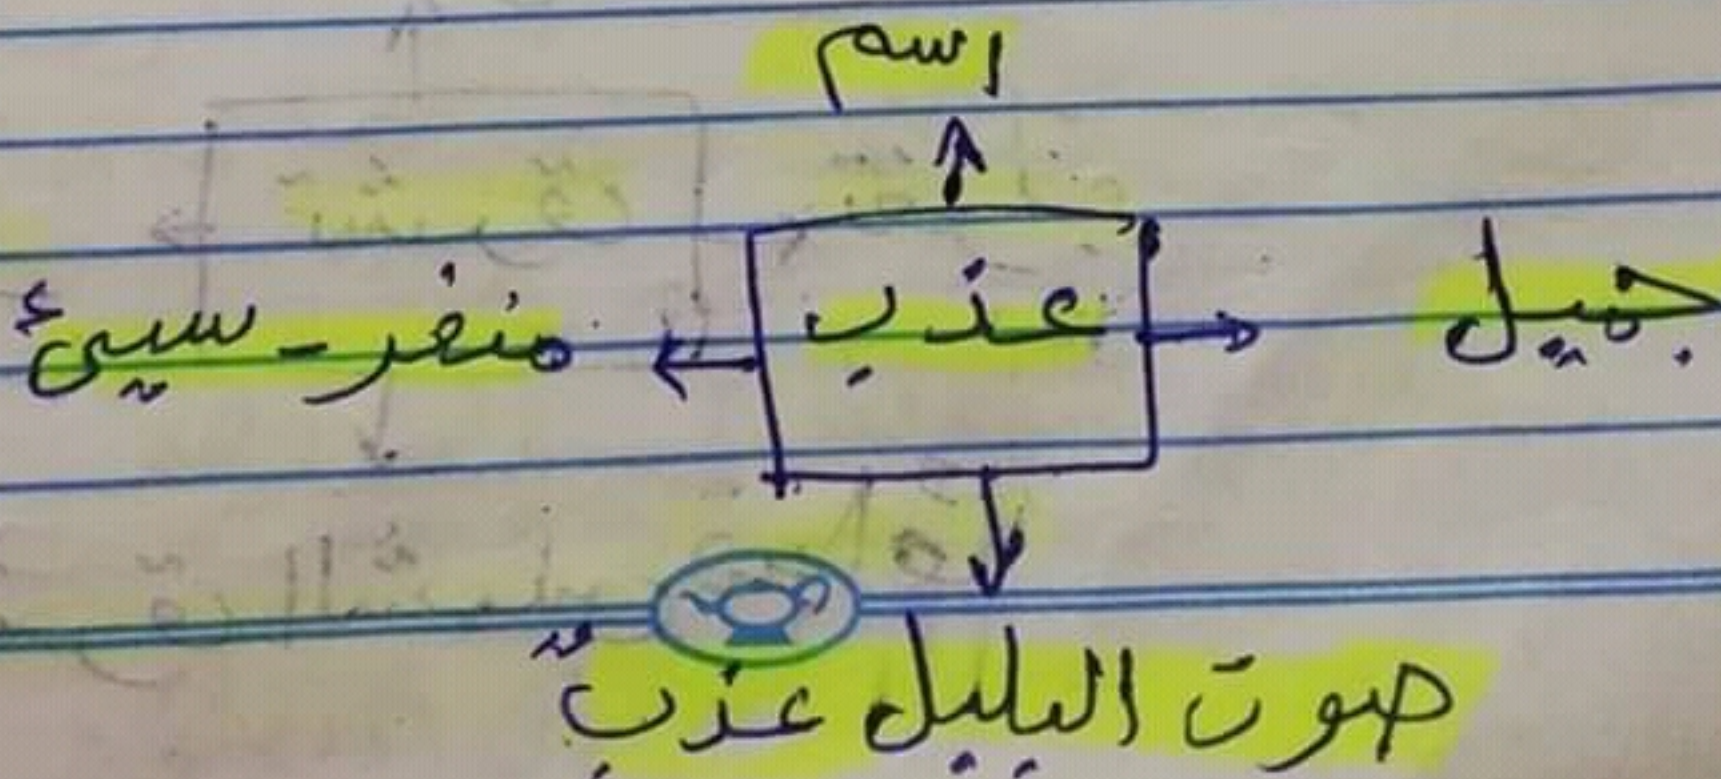 اسم
جميل عذب منفر - سيئ
صوت البلبل عذبٌ